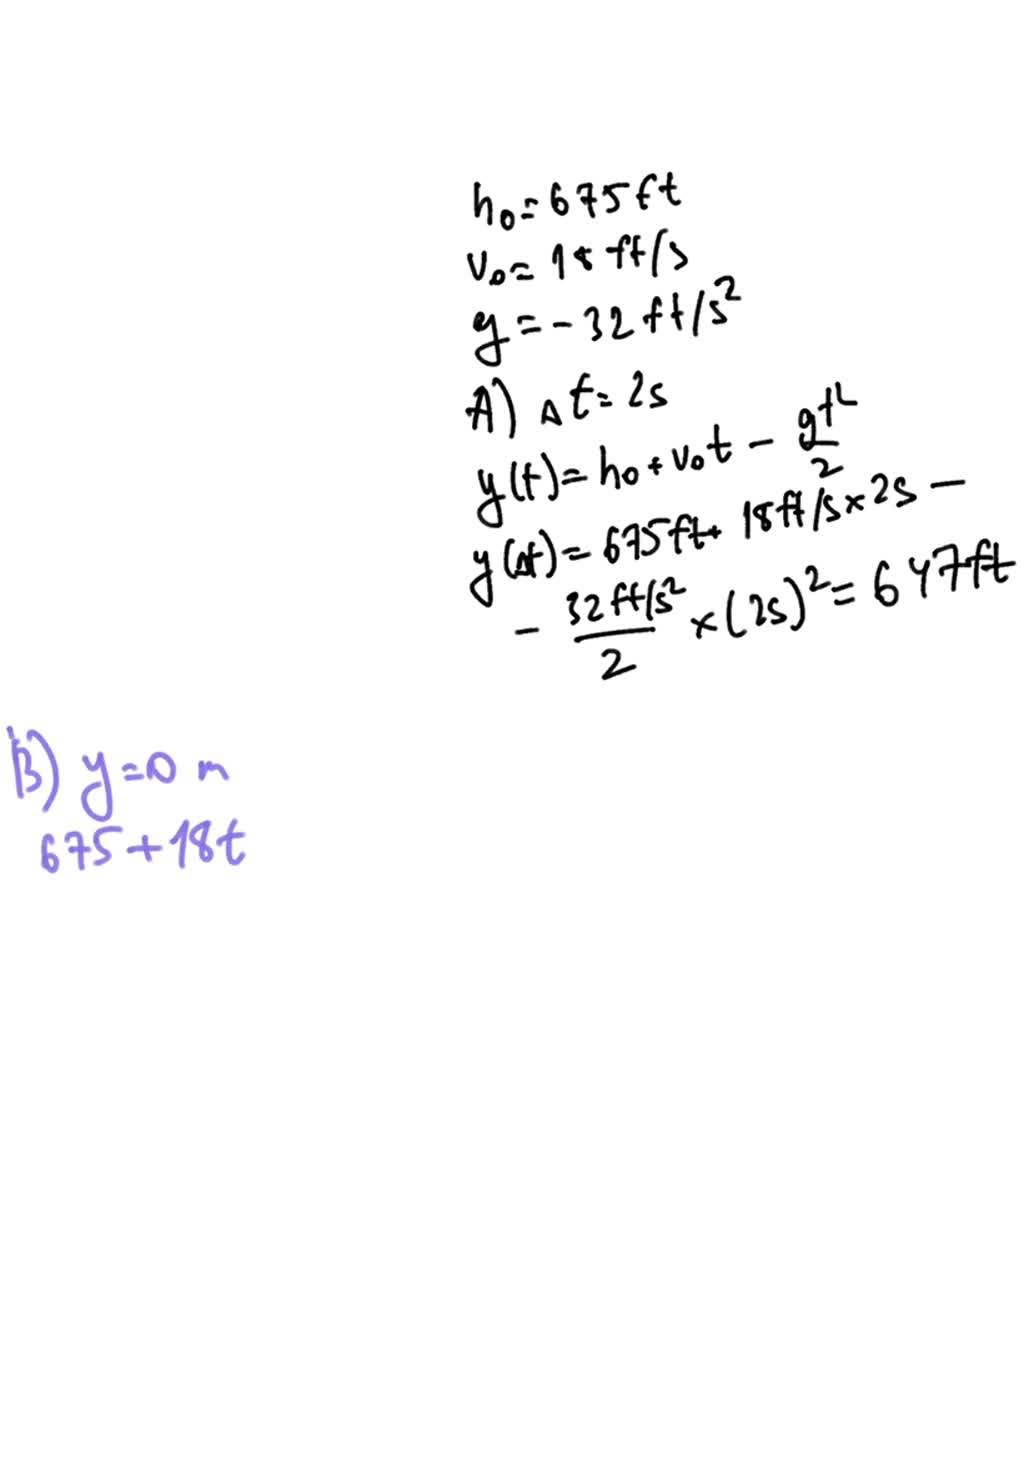 h₀=675ft
v₀=18 ft/s
g=-32ft/s²
A) Δt=2s
y(t)=h₀+v₀t - gt²/2
y(Δt)=675ft+ 18ft/s×2s -
- 32ft/s²/2 ×(2s)²=647ft
B) y=0 m
675+18t